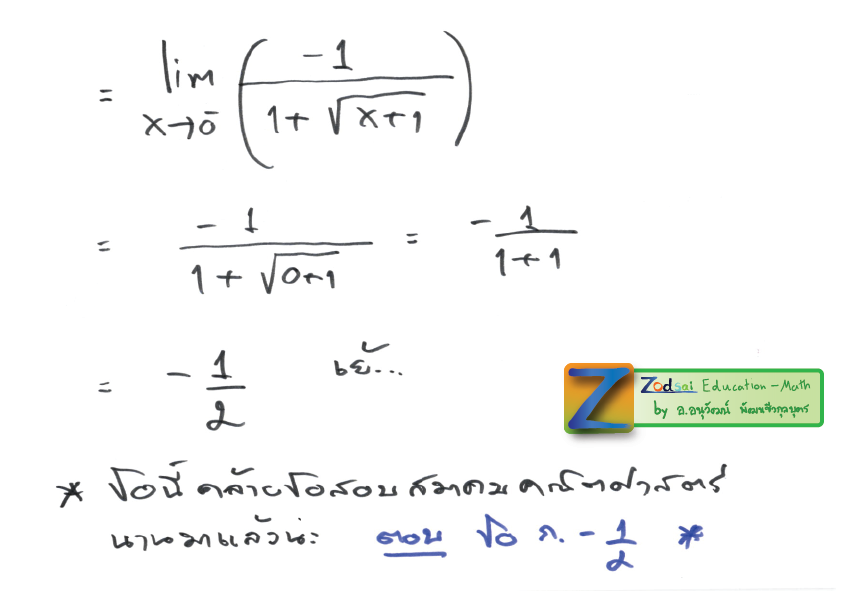 = lim x→0⁻ ( -1 / (1+√(x+1)) )
= -1 / (1+√(0+1)) = - 1 / (1+1)
= - 1/2 เย้...
Zodsai Education - Math
by อ.อนุวัฒน์
* ข้อนี้ คล้ายข้อสอบ สมาคม คณิตศาสตร์
นานมาแล้วน่ะ ตอบ ข้อ ก. - 1/2 *